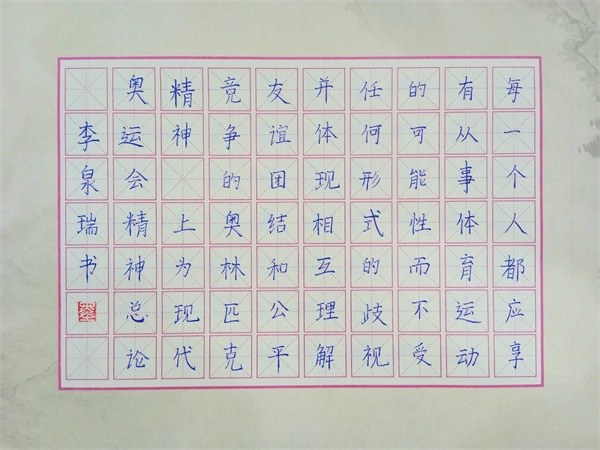 每一个人都应享
有从事体育运动
的可能性而不受
任何形式的歧视
并体现相互理解
友谊团结和公平
竞争的奥林匹克
精神 上为现代
奥运会精神总论
李泉瑞书